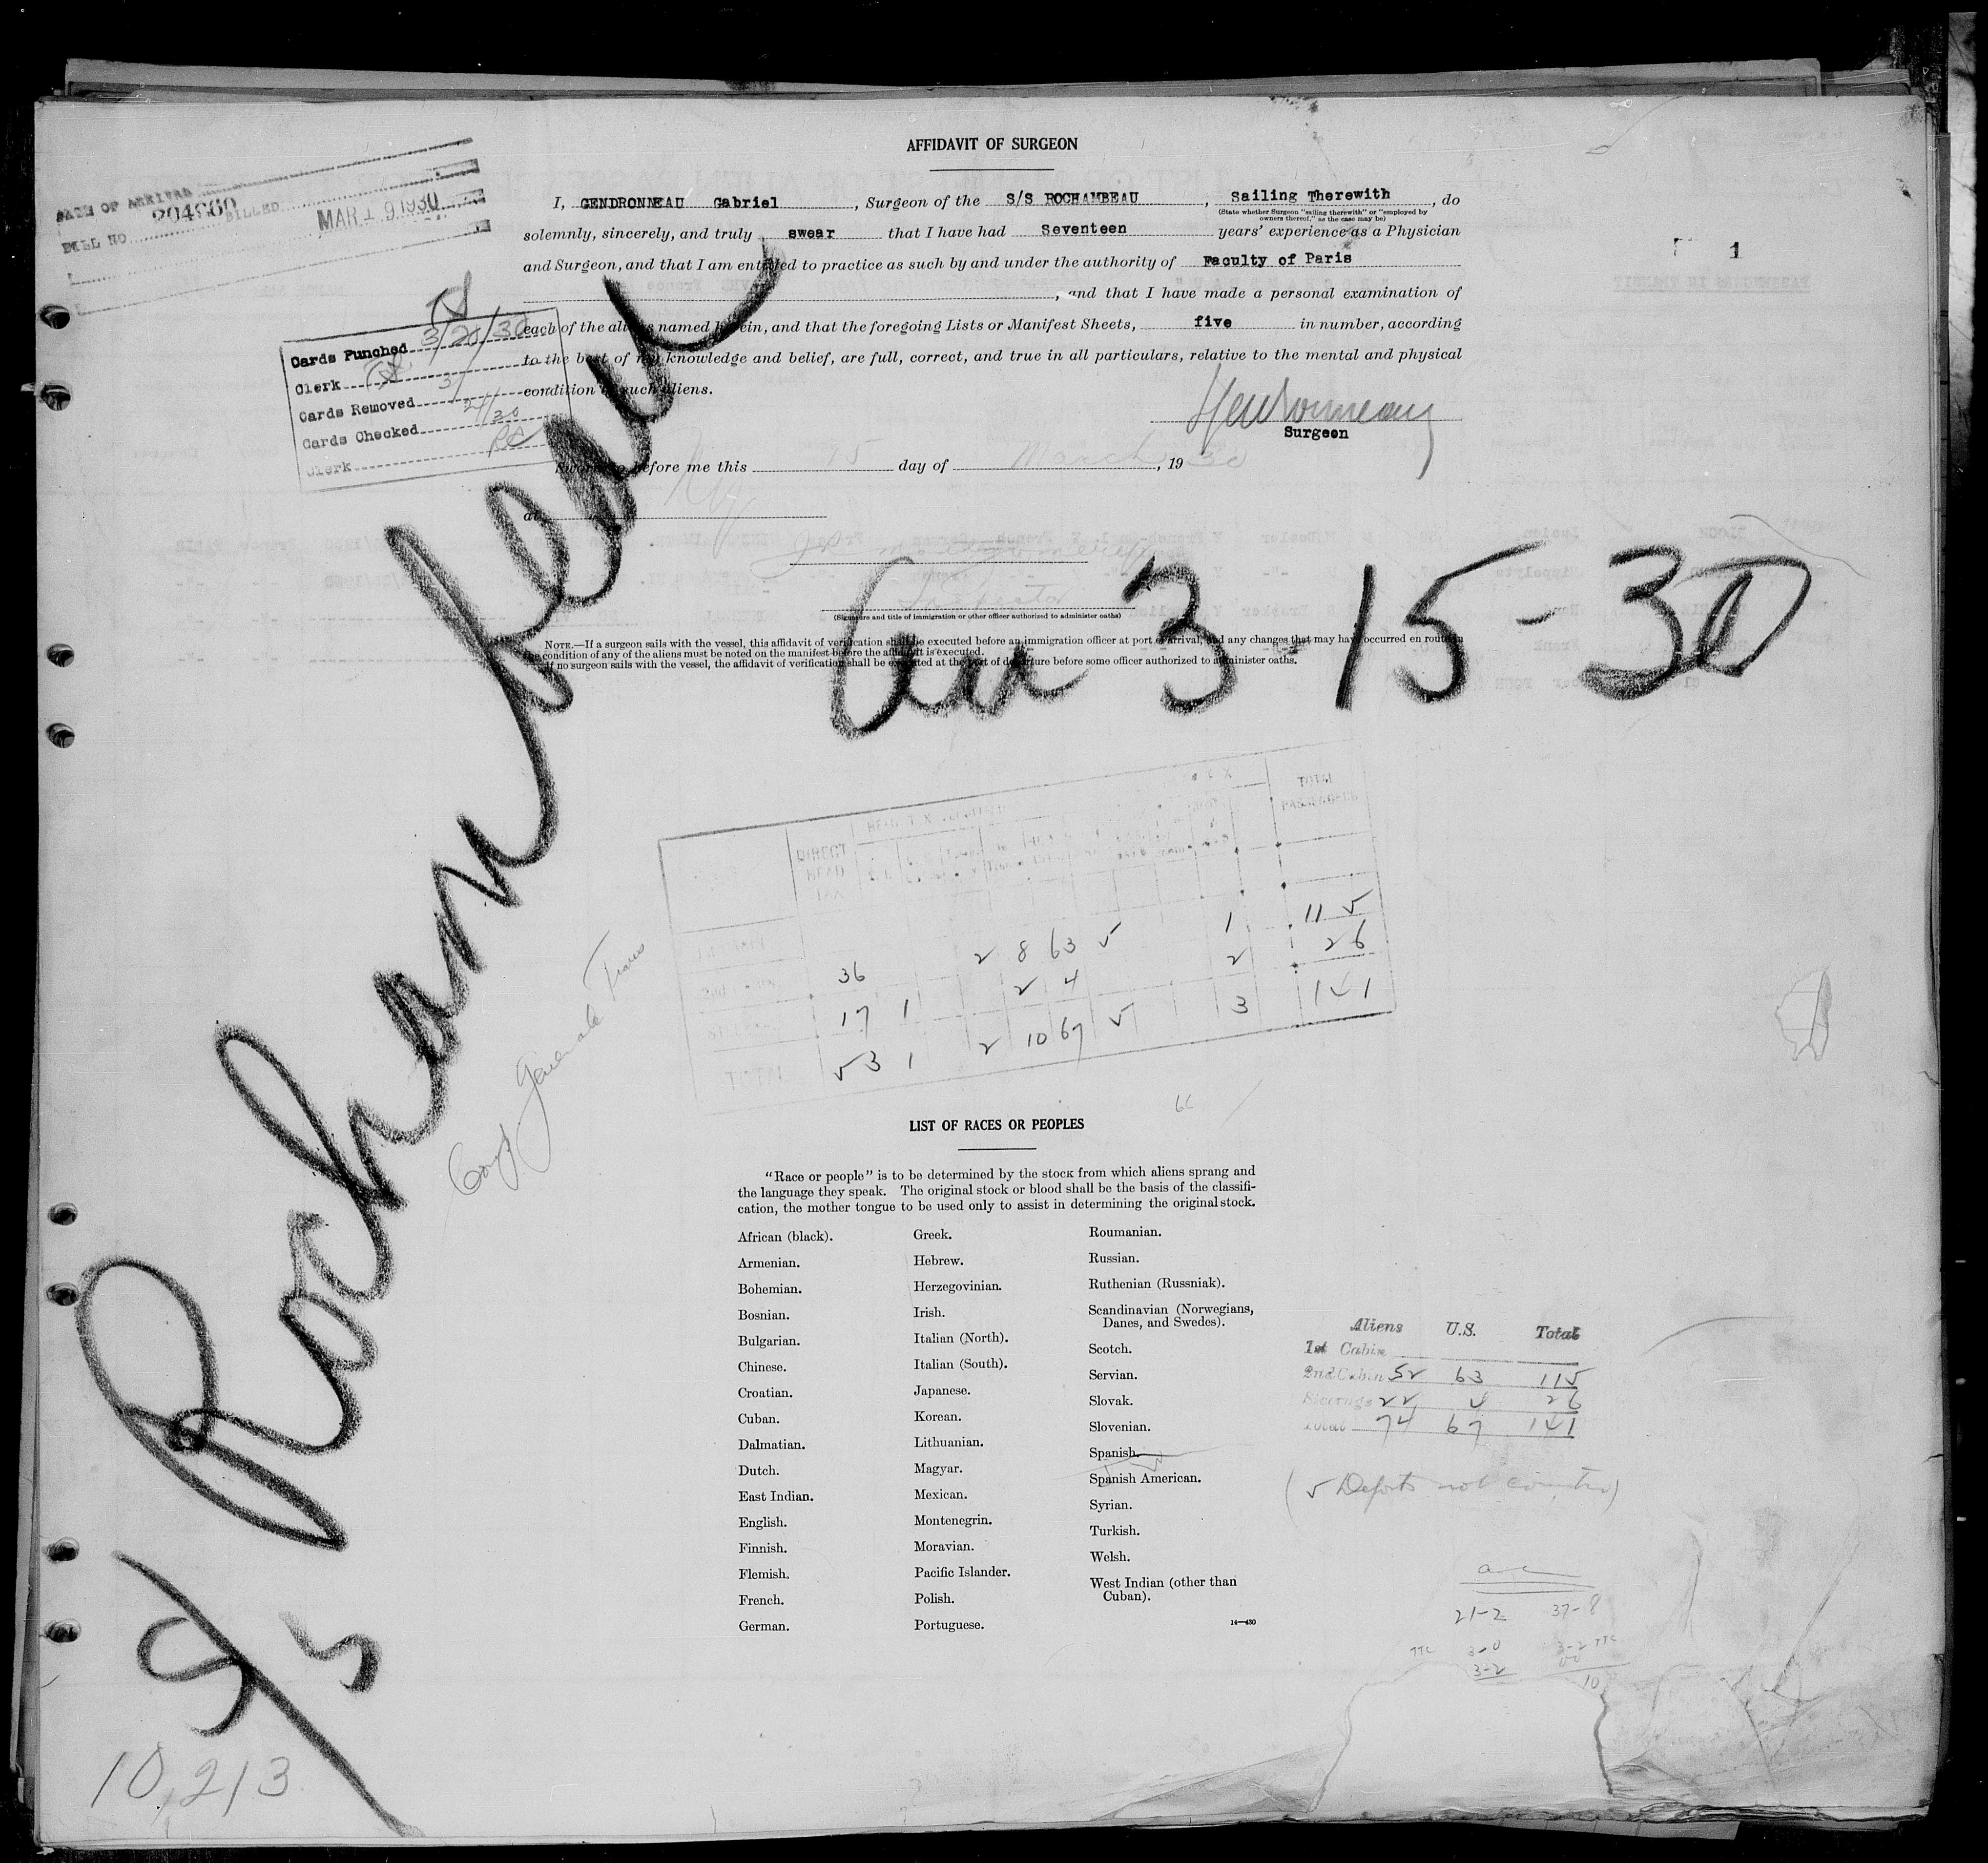 AFFIDAVIT OF SURGEON
I, GENDRONNEAU Gabriel, Surgeon of the S/S ROCHAMBEAU, Sailing Therewith, do
(State whether Surgeon "sailing therewith" or "employed by
owners thereof," as the case may be)
solemnly, sincerely, and truly swear that I have had Seventeen years' experience as a Physician
and Surgeon, and that I am entitled to practice as such by and under the authority of Faculty of Paris
, and that I have made a personal examination of
each of the aliens named herein, and that the foregoing Lists or Manifest Sheets, five in number, according
to the best of my knowledge and belief, are full, correct, and true in all particulars, relative to the mental and physical
condition of such aliens.
Surgeon
Sworn to before me this 15 day of March, 1930
at
Inspector
(Signature and title of immigration or other officer authorized to administer oaths)
NOTE.—If a surgeon sails with the vessel, this affidavit of verification shall be executed before an immigration officer at port of arrival, and any changes that may have occurred en route in
the condition of any of the aliens must be noted on the manifest before the affidavit is executed.
If no surgeon sails with the vessel, the affidavit of verification shall be executed at the port of departure before some officer authorized to administer oaths.
DATE OF ARRIVAL
BILL NO. 204960 BILLED MAR 19 1930
1
Cards Punched 3/20/30
Clerk
Cards Removed 3/
Cards Checked 21/30
Clerk
S/S Rochambeau
Arr 3-15-30
Gove Generale Trans
DIRECT HEAD TAX
TOTAL PASSENGERS
36 2 8 63 5 1 115
17 1 2 4 2 26
TOTAL 53 1 2 10 67 5 3 141
LIST OF RACES OR PEOPLES
"Race or people" is to be determined by the stock from which aliens sprang and
the language they speak. The original stock or blood shall be the basis of the classifi-
cation, the mother tongue to be used only to assist in determining the original stock.
African (black).
Armenian.
Bohemian.
Bosnian.
Bulgarian.
Chinese.
Croatian.
Cuban.
Dalmatian.
Dutch.
East Indian.
English.
Finnish.
Flemish.
French.
German.
Greek.
Hebrew.
Herzegovinian.
Irish.
Italian (North).
Italian (South).
Japanese.
Korean.
Lithuanian.
Magyar.
Mexican.
Montenegrin.
Moravian.
Pacific Islander.
Polish.
Portuguese.
Roumanian.
Russian.
Ruthenian (Russniak).
Scandinavian (Norwegians,
Danes, and Swedes).
Scotch.
Servian.
Slovak.
Slovenian.
Spanish.
Spanish American.
Syrian.
Turkish.
Welsh.
West Indian (other than
Cuban).
14—430
Aliens U.S. Total
1st Cabin
2nd Cabin 52 63 115
Steerage 22 4 26
Total 74 67 141
(5 Deports not counted)
21-2 37-8
TTC 3-0 3-2 TTC
3-2 00
10
10,213